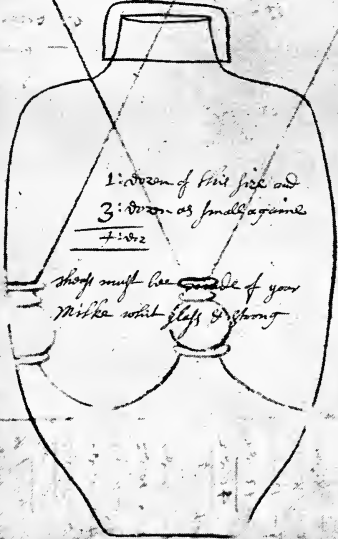 1: dozen of this size and
3: dozen as small againe
4: doz
thes must bee made of your
Milke whit glass & strong